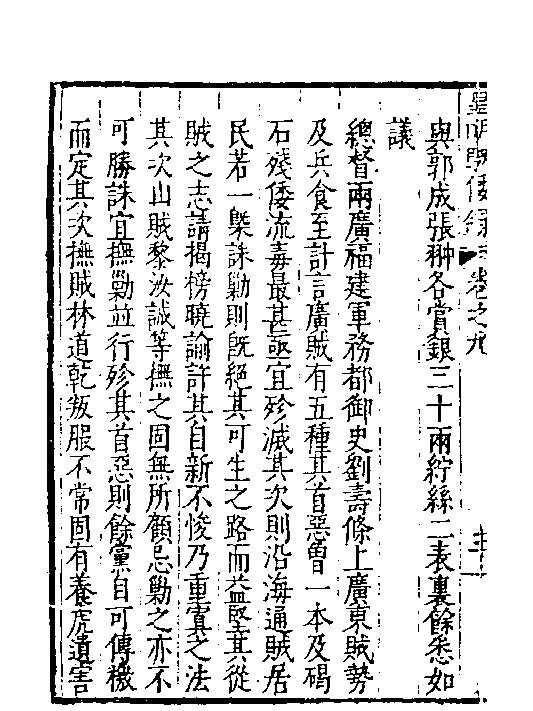 皇明馭倭錄 卷之九
與郭成張翀各賞銀三十兩紵絲二表裏餘悉如
議
總督兩廣福建軍務都御史劉壽條上廣東賊勢
及兵食至計言廣賊有五種其首惡曾一本及碣
石殘倭流毒最甚亟宜殄滅其次則沿海通賊居
民若一槩誅勦則旣絕其可生之路而益堅其從
賊之志請揭榜曉諭許其自新不悛乃重寘之法
其次山賊黎汝誠等撫之固無所顧忌勦之亦不
可勝誅宜撫勦並行殄其首惡則餘黨自可傳檄
而定其次撫賊林道乾叛服不常固有養虎遺害